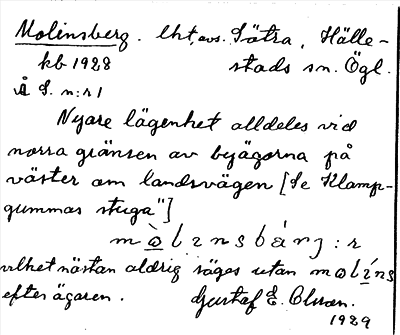 Molinsberg. lht, avs. Sätra, Hälle-
kb 1928 stads sn. Ögl.
Å S. n:r 1
Nyare lägenhet alldeles vid
norra gränsen av byägorna på
väster om landsvägen [Se Klamp-
gummas stuga"]
mòlɩnsbárȷ:r
vilket nästan aldrig säges utan molíns
efter ägaren. Gustaf E. Olsson.
1929